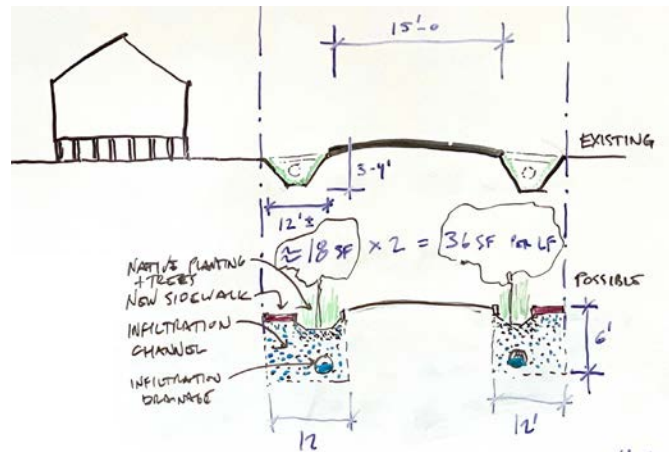 15'-0
EXISTING
3-4'
12'±
≈18 SF × 2 = 36 SF PER LF
NATIVE PLANTING
+ TREES
NEW SIDEWALK
INFILTRATION
CHANNEL
INFILTRATION
DRAINAGE
POSSIBLE
6'
12
12'